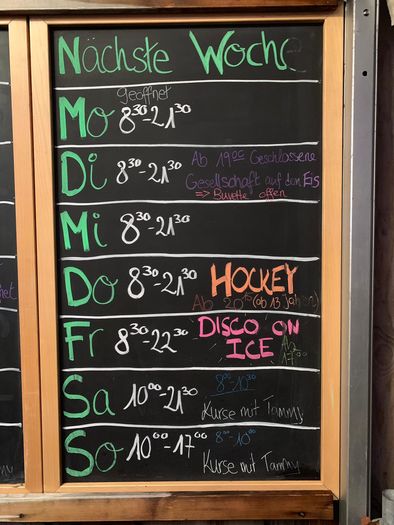 Nächste Woche
geöffnet
Mo 8³⁰-21³⁰
Di 8³⁰-21³⁰ Ab 19⁰⁰ Geschlossene
Gesellschaft auf dem Eis
=> Buvette offen
Mi 8³⁰-21³⁰
Do 8³⁰-21³⁰ HOCKEY
Ab 20¹⁰ (ab 13 Jahren)
Fr 8³⁰-22³⁰ DISCO ON
ICE Ab
17⁰⁰
Sa 10⁰⁰-21³⁰ 8⁰⁰-10³⁰
Kurse mit Tammy
So 10⁰⁰-17⁰⁰ 8⁰⁰-10⁰⁰
Kurse mit Tammy